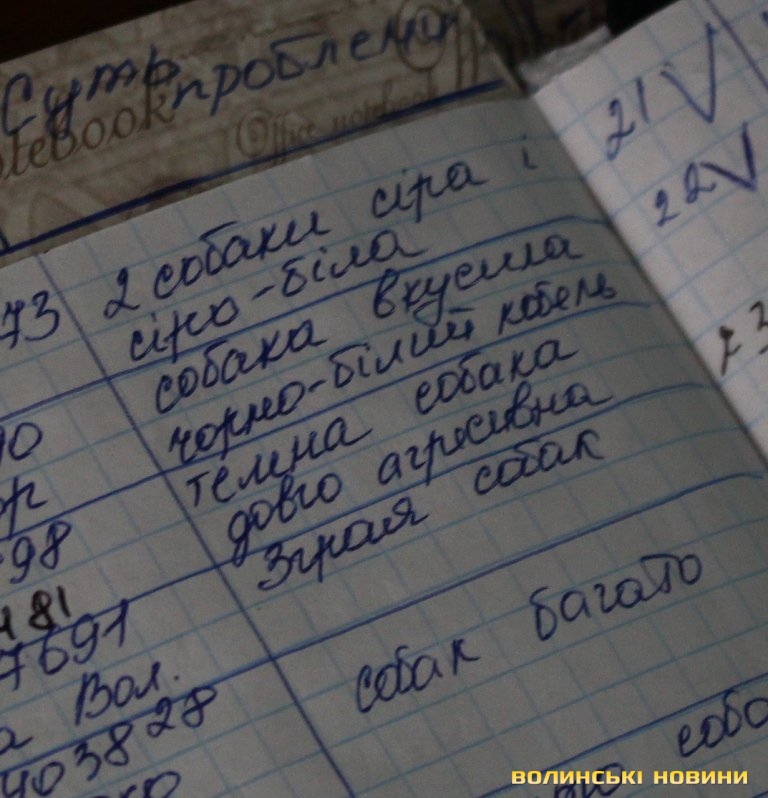 Суть проблеми
Notebook
Office notebook
21 V
22 V
23
73 2 собаки сіра і
сіро-біла
собака вкусила
чорно-білий кобель
темна собака
довго агресивна
Зграя собак
98
481
7691
Вол.
403828
собак багато
соба
ВОЛИНСЬКІ НОВИНИ